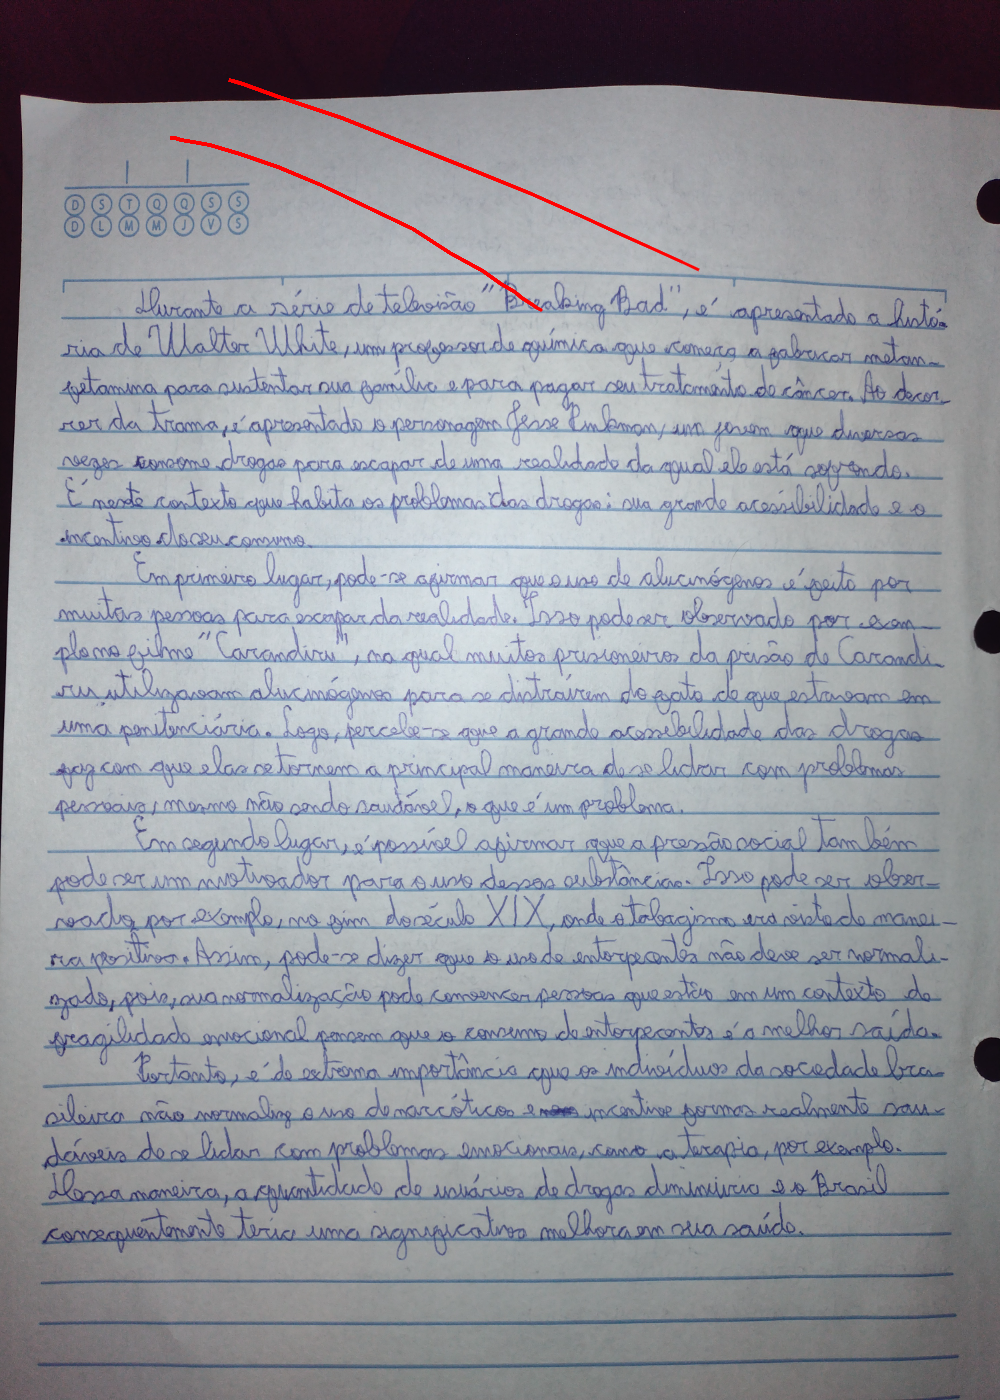 D S T Q Q S S
D L M M J V S
Durante a série de televisão "Breaking Bad", é apresentado a histó-
ria de Walter White, um professor de química que começa a fabricar metan-
fetamina para sustentar sua família e para pagar seu tratamento de câncer. Ao decor-
rer da trama, é apresentado o personagem Jesse Pinkman, um jovem que diversas
vezes consome drogas para escapar de uma realidade da qual ele está sofrendo.
É neste contexto que habita os problemas das drogas: sua grande acessibilidade e o
incentivo do seu consumo.
Em primeiro lugar, pode-se afirmar que o uso de alucinógenos é feito por
muitas pessoas para escapar da realidade. Isso pode ser observado por exem-
plo no filme "Carandiru", na qual muitos prisioneiros da prisão de Carandi-
ru utilizavam alucinógenos para se distraírem do fato de que estavam em
uma penitenciária. Logo, percebe-se que a grande acessibilidade das drogas
faz com que elas se tornem a principal maneira de se lidar com problemas
pessoais, mesmo não sendo saudável, o que é um problema.
Em segundo lugar, é possível afirmar que a pressão social também
pode ser um motivador para o uso dessas substâncias. Isso pode ser obser-
vado, por exemplo, no fim do século XIX, onde o tabagismo era visto de manei-
ra positiva. Assim, pode-se dizer que o uso de entorpecentes não deve ser normali-
zado, pois, sua normalização pode convencer pessoas que estão em um contexto de
fragilidade emocional pensem que o consumo de entorpecentes é a melhor saída.
Portanto, é de extrema importância que os indivíduos da sociedade bra-
sileira não normalize o uso de narcóticos e incentive formas realmente sau-
dáveis de se lidar com problemas emocionais, como a terapia, por exemplo.
Dessa maneira, a quantidade de usuários de drogas diminuiria e o Brasil
consequentemente teria uma significativa melhora em sua saúde.